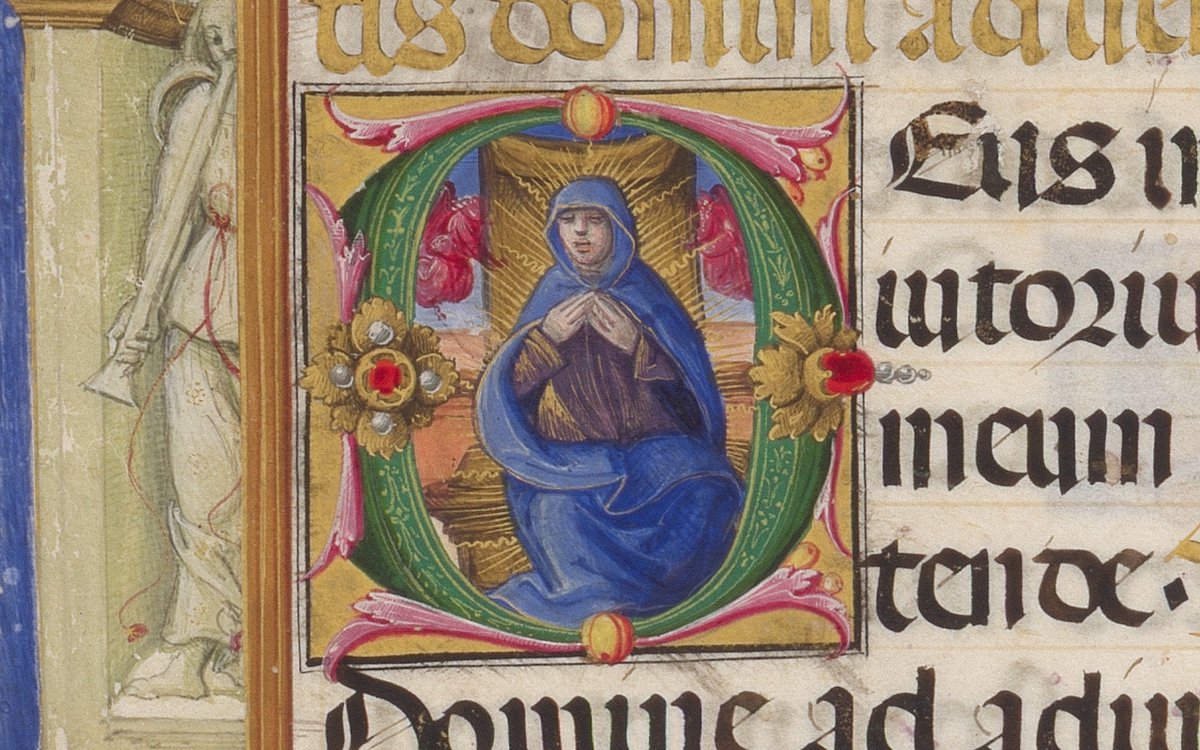 tis domini ad ue
DEus in
iutoriu
meum
tende.
Domine ad adiu